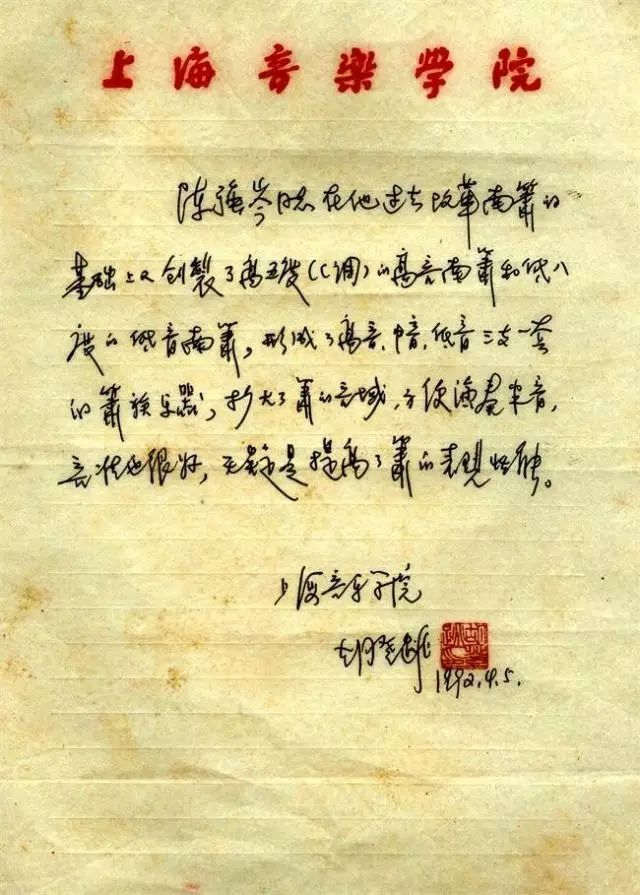 上海音樂学院
陈强岑同志在他过去改革南簫的
基础上又创製了高五度(C调)的高音南簫和低八
度的低音南簫，形成了高音、中音、低音三支一套
的簫族乐器，扩大了簫的音域，方便演奏半音，
音准也很好，无疑是提高了簫的表现性能。
上海音乐学院
胡登跳
1992.4.5.